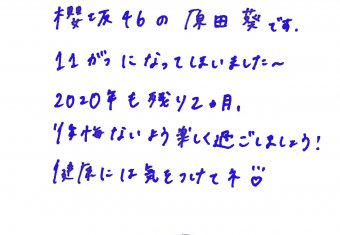 櫻坂46の原田葵です.
11がつになってしまいました〜
2020年も残り2ヵ月,
悔いないよう楽しく過ごしましょう!
健康には気をつけてネ